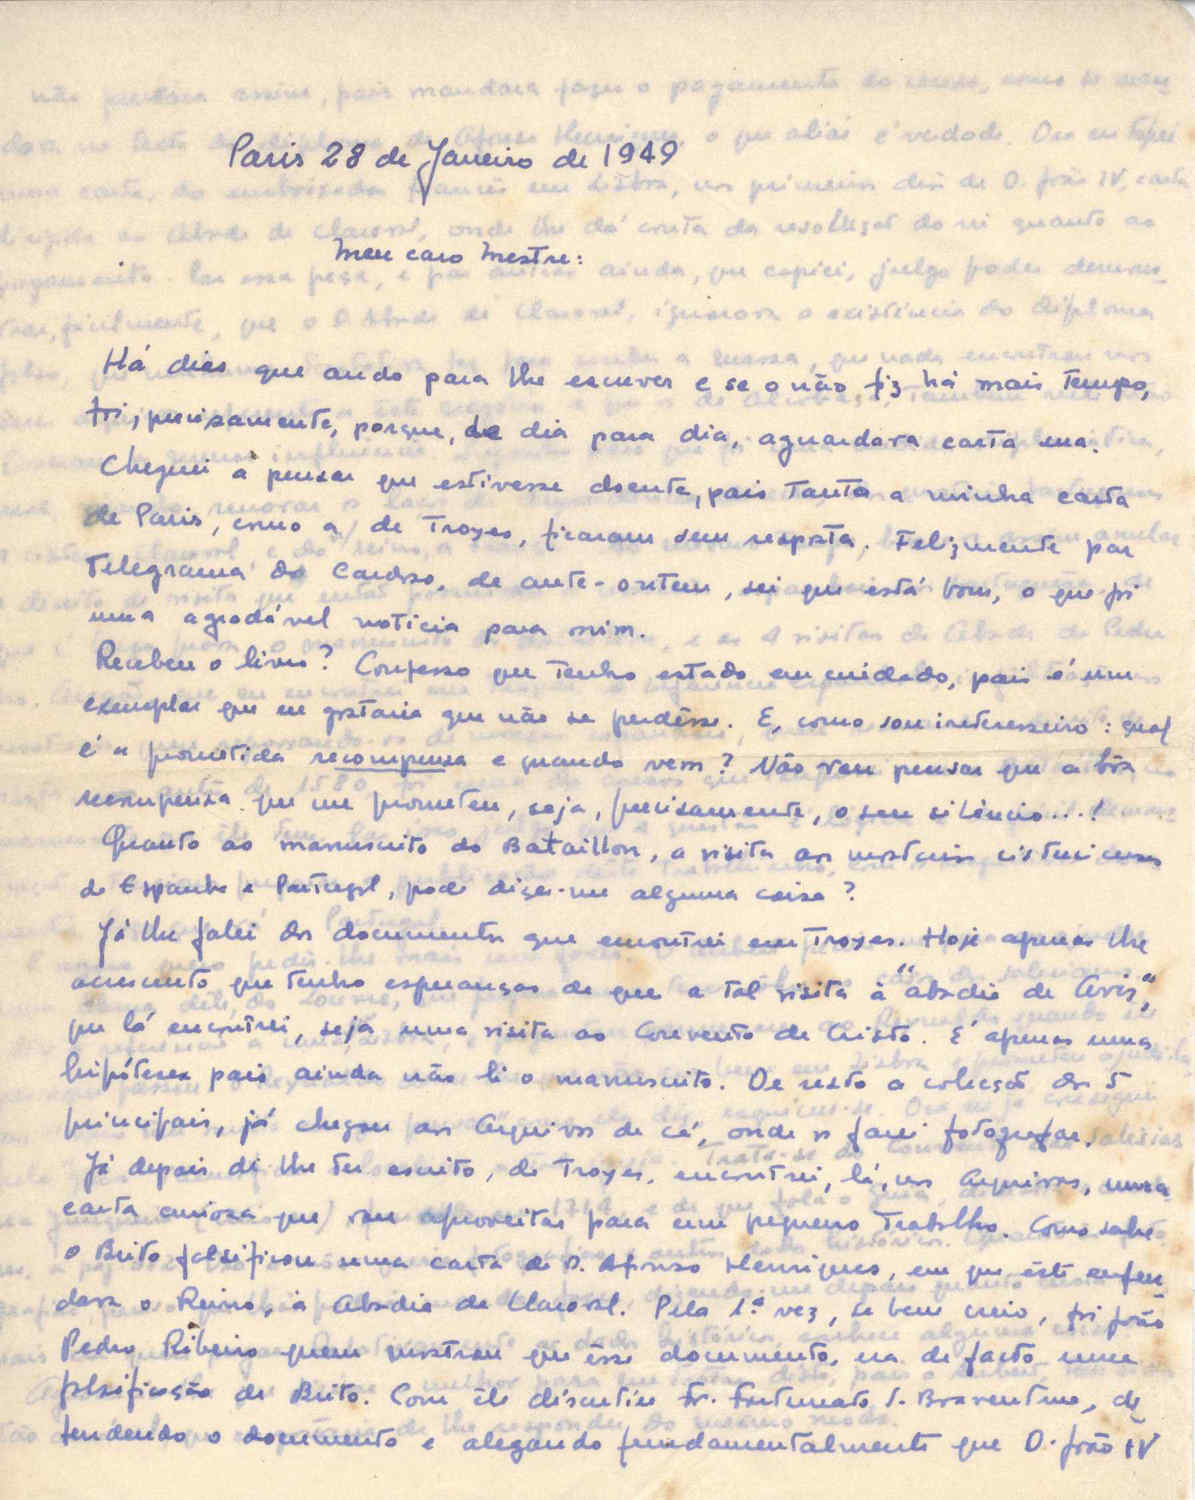 Paris 28 de Janeiro de 1949
Meu caro Mestre:
Há dias que ando para lhe escrever e se o não fiz há mais tempo,
foi, precisamente, porque, de dia para dia, aguardava carta sua.
Cheguei a pensar que estivesse doente, pois tanto a minha carta
de Paris, como a de Troyes, ficaram sem resposta. Felizmente por
telegrama do Cardoso, de ante-ontem, sei que está bom, o que foi
uma agradável notícia para mim.
Recebeu o livro? Confesso que tenho estado em cuidado, pois é um
exemplar que eu gostaria que não se perdêsse. E, como sou interesseiro: qual
é a prometida recompensa e quando vem? Não vou pensar que a bôa
recompensa que me prometeu, seja, precisamente, o seu silêncio...!
Quanto ao manuscrito do Bataillon, a visita aos mosteiros cistercienses
de Espanha e Portugal, pode dizer-me alguma coisa?
Já lhe falei dos documentos que encontrei em Troyes. Hoje apenas lhe
acrescento que tenho esperanças de que a tal visita à "abadia de Aviz",
que lá encontrei, seja uma visita ao Convento de Cristo. É apenas uma
hipótese pois ainda não li o manuscrito. De resto a colecção dos 5
principais, já chegou aos Arquivos de cá, onde os farei fotografar.
Já depois de lhe ter escrito, de Troyes, encontrei, lá, nos Arquivos, uma
carta curiosa que vou aproveitar para um pequeno trabalho. Como sabe
o Brito falsificou uma carta de D. Afonso Henriques, em que êste enfeu-
dava o Reino, à Abadia de Claraval. Pela 1.ª vez, se bem creio, foi João
Pedro Ribeiro quem mostrou que êsse documento, era de facto uma
falsificação de Brito. Com êle discutiu Fr. Fortunato S. Boaventura, de-
fendendo o documento e alegando fundamentalmente que D. João IV